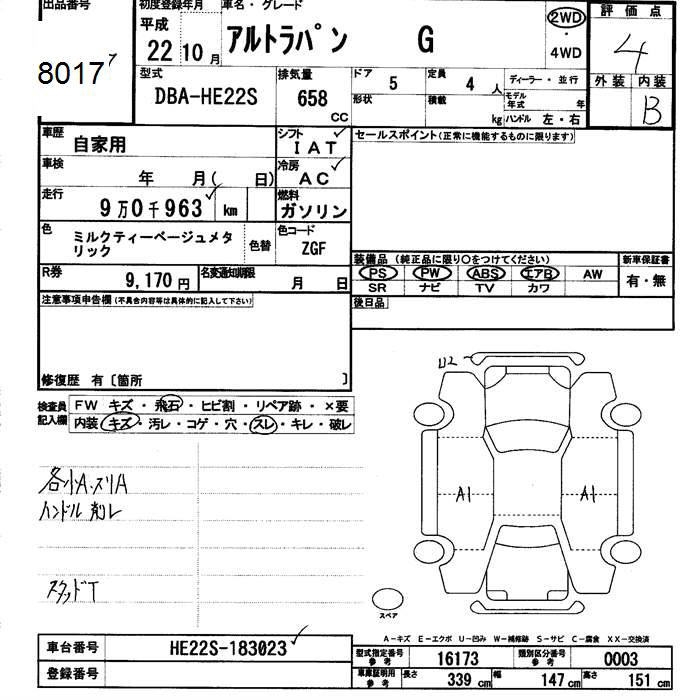 出品番号
8017
初度登録年月
平成
22 10 月
車名・グレード
アルトラパン G
2WD
・
4WD
評価点
4
外装 内装
B
型式
DBA-HE22S
排気量
658
CC
ドア
5
定員
4 人
ディーラー・並行
形状
積載
kg
モデル年式 年
ハンドル 左・右
車歴
自家用
シフト
IAT
車検
年 月( 日)
冷房
AC
走行
9万0千963 km
燃料
ガソリン
色
ミルクティーベージュメタリック
色替
色コード
ZGF
R券
9,170 円
名変通知期限
月 日
セールスポイント(正常に機能するものに限ります)
装備品 (純正品に限り○をつけてください)
新車保証書
PS PW ABS エアB AW
SR ナビ TV カワ
有・無
後日品
注意事項申告欄(不具合内容等は具体的に記入して下さい)
修復歴 有〔箇所 〕
検査員記入欄
FW キズ・飛石・ヒビ割・リペア跡・×要
内装・キズ・汚レ・コゲ・穴・スレ・キレ・破レ
各小A.スリA
ハンドル削レ
スタッドT
U2
A1
A1
スペア
A-キズ E-エクボ U-凹み W-補修跡 S-サビ C-腐食 XX-交換済
車台番号
HE22S-183023
登録番号
型式指定番号 参考
16173
類別区分番号 参考
0003
車庫証明用 参考
長さ 339 cm 幅 147 cm 高さ 151 cm